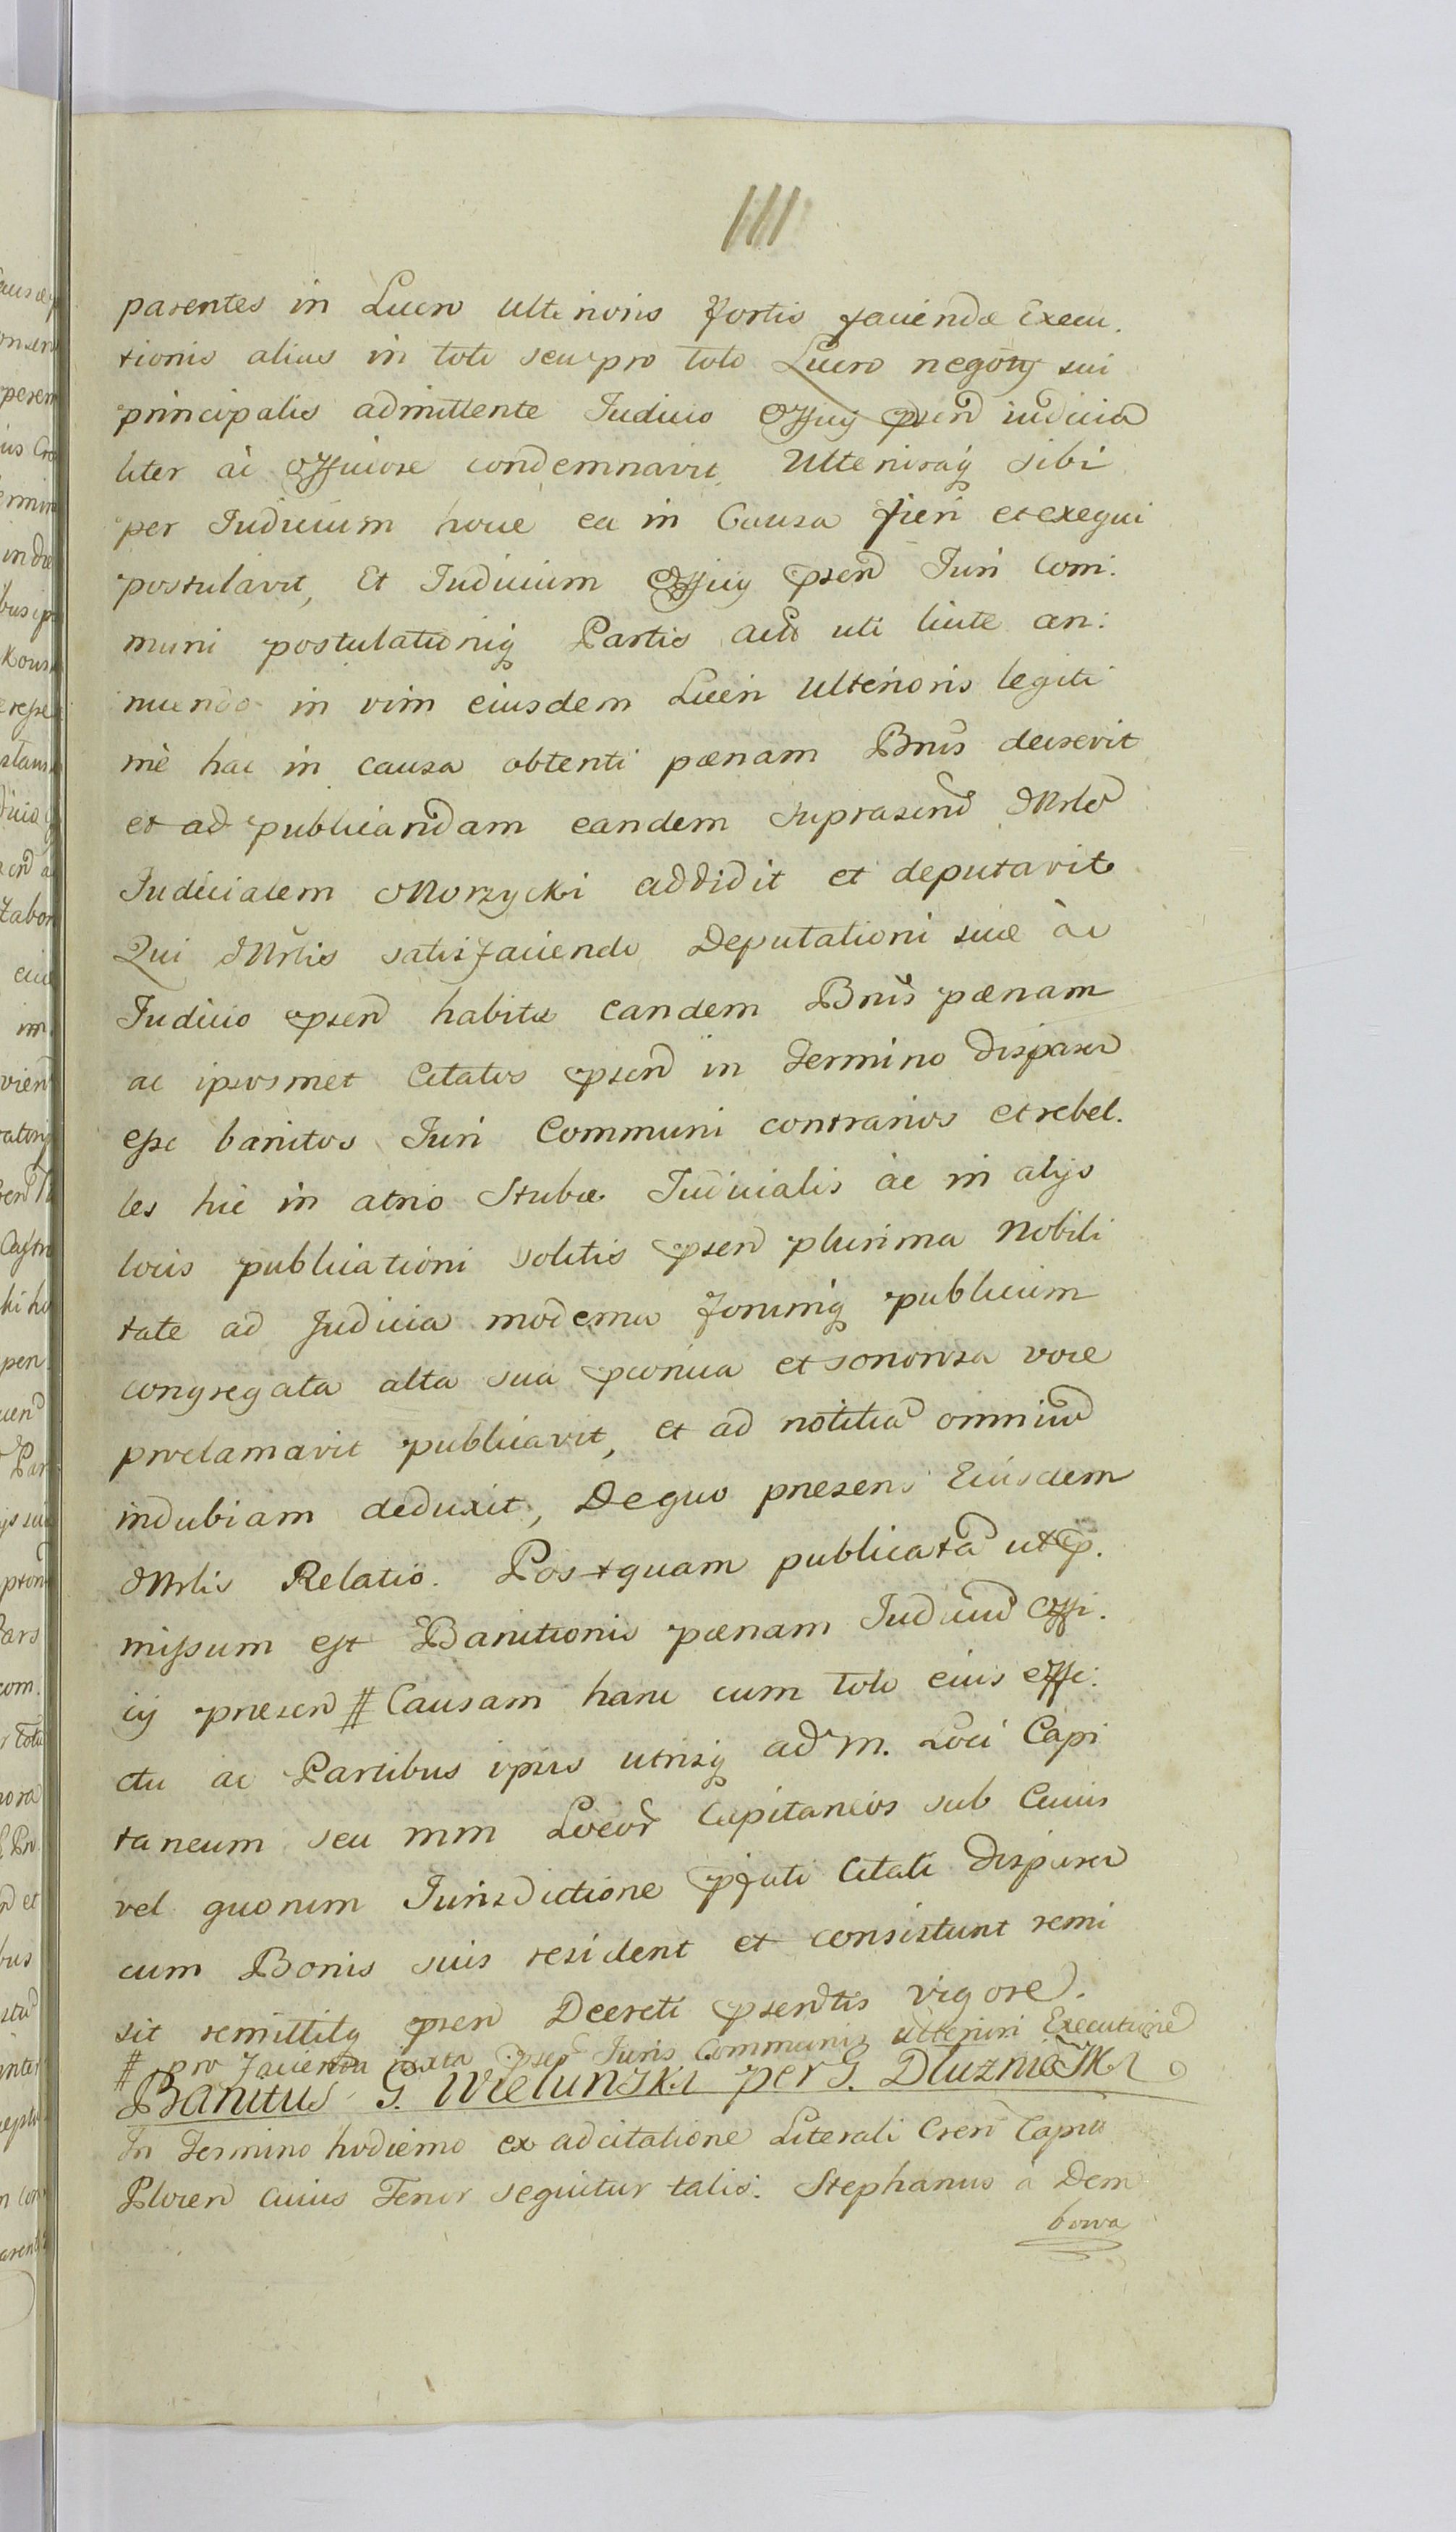 111
parentes in Lucro ulterioris fortis faciendæ Execu.
tionis alias in toto seu pro toto Lucro negotÿ sui
principalis admittente Iudicio Officÿ psen iudicia
liter ac officiose condemnavit, Ulteriusq sibi
per Iudicium hocce ea in Causa fieri et exequi
postulavit, Et Iudicium Officÿ psen Iuri Com.
muni postulationiq Partis act uti licite an:
nuendo in vim eiusdem Lucri Ulterioris legiti
mè hac in causa obtenti pœnam Bnis decrevit
et ad publicandam eandem suprascrip Mrlē
Iudicialem Morzycki addidit et deputavit
Qui Mrlis satisfaciendo Deputationi suæ àc
Iudicio psen habitæ eandem Bnis pœnam
ac ipsosmet Citatos psen in Termino disparen
esse banitos Iuri Communi contrarios et rebel.
les hic in atrio Stubæ Iudicialis àc in alÿs
locis publicationi solitis psen plurima Nobili
tate ad Judicia moderna forumq publicum
congregata alta sua pconica et sonorosa voce
proclamavit publicavit, et ad notitiã omnium
indubiam deduxit, De quo præsens Eiusdem
Mrlis Relatio. Postquam publicatã ut p.
missum est Banitionis pœnam Iudicium Offi.
cÿ præsen # Causam hanc cum toto eius effe:
ctu ac Partibus ipsius utrisq ad M. Loci Capi
taneum seu MM Locor Capitaneos sub Cuius
vel quorum Iurisdictione pfati Citati disparen
cum Bonis suis resident et consistunt remi
sit remittitq psen Decreti psentis vigore.
# pro facienda iuxta psep Iuris Communis ulteriori Executione
Banitus G. Wielunski per G. Dluzniewski
In Termino hodierno ex adcitatione Literali Cren Capna
Plocen cuius Tenor sequitur talis. Stephanus à Dem
bowa